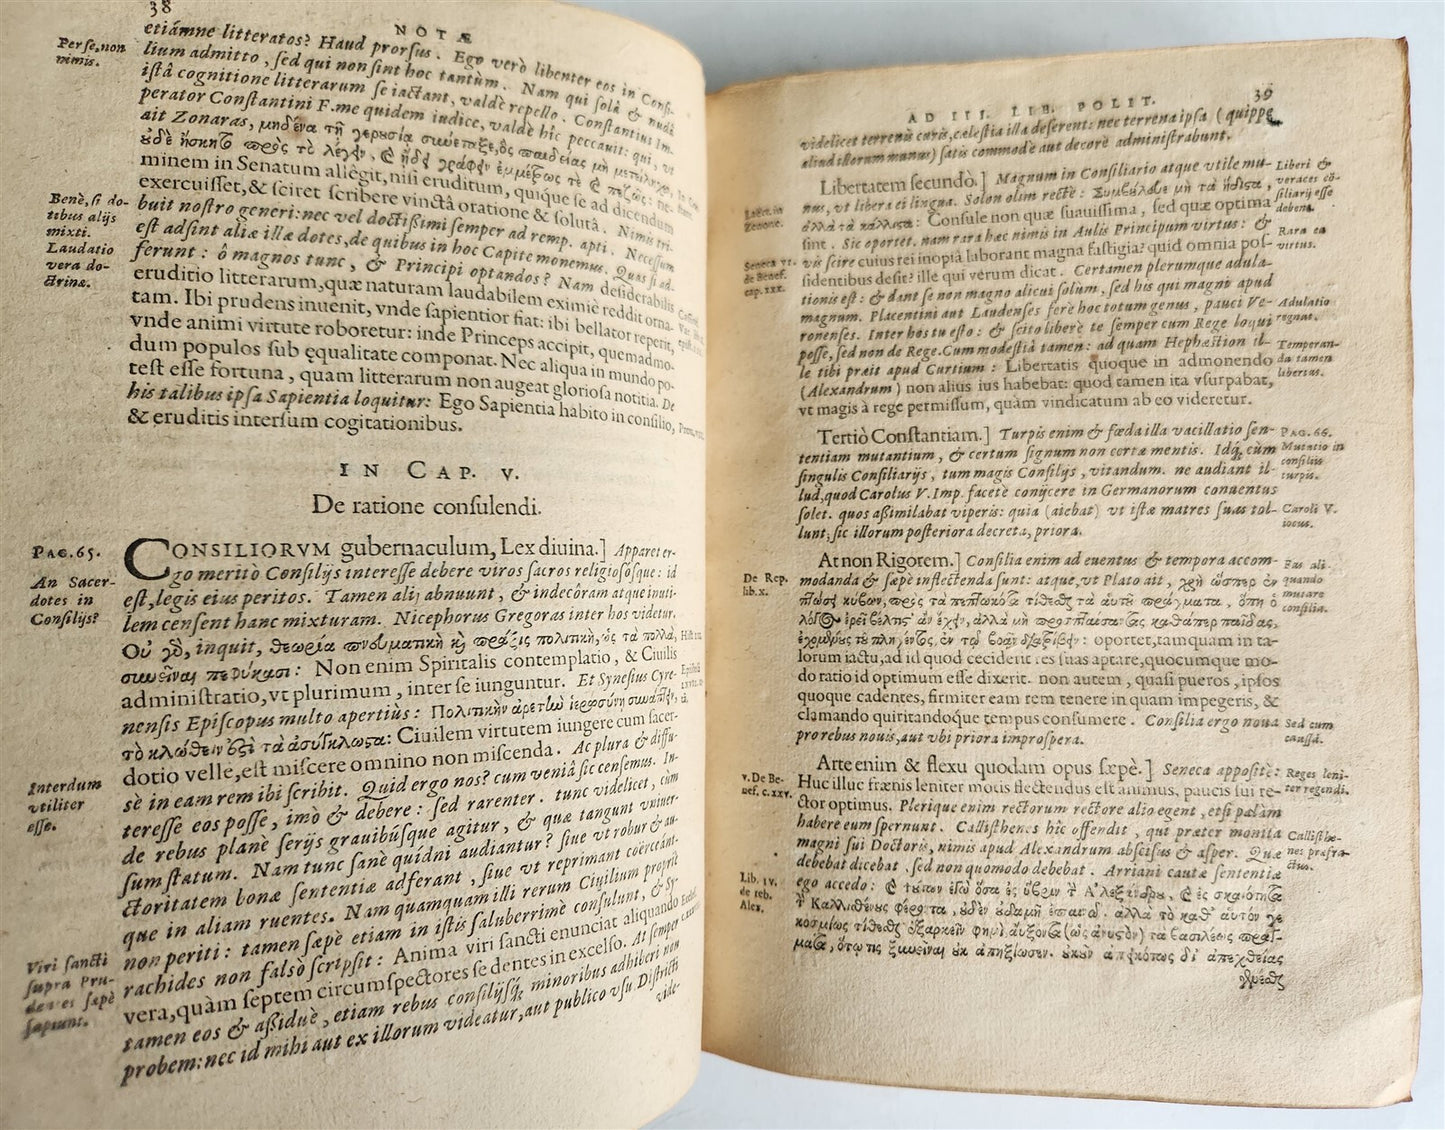 38
NOTÆ
etiámne litteratos? Haud prorsus. Ego verò libenter eos in Consi-
Per se, non
nimis.
lium admitto, sed qui non sint hoc tantùm. Nam qui solâ & nudâ
istâ cognitione litterarum se iactant, valdè repello. Constantius Im-
perator Constantini F. me quidem iudice, valdè hîc peccauit: qui, vt
ait Zonaras, μηδένα τῇ γερουσία
minem in Senatum allegit, nisi eruditum, quique se ad dicendum
exercuisset, & sciret scribere vinctâ oratione & solutâ. Nimis tri-
Benè, si do-
tibus alijs
mixti.
Laudatio
vera do-
ctrinæ.
buit nostro generi: nec vel doctißimi semper ad remp. apti. Necessum
est adsint aliæ illæ dotes, de quibus in hoc Capite monemus. Quas si ad-
ferunt: ô magnos tunc, & Principi optandos? Nam desiderabilis
eruditio litterarum, quæ naturam laudabilem eximiè reddit orna-
tam. Ibi prudens inuenit, vnde sapientior fiat: ibi bellator reperit,
vnde animi virtute roboretur: inde Princeps accipit, quemadmo-
dum populos sub ęqualitate componat. Nec aliqua in mundo po-
test esse fortuna, quam litterarum non augeat gloriosa notitia. De
his talibus ipsa Sapientia loquitur: Ego Sapientia habito in consilio,
& eruditis intersum cogitationibus.
IN CAP. V.
De ratione consulendi.
PAG. 65.
An Sacer-
dotes in
Consilijs?
CONSILIORVM gubernaculum, Lex diuina.] Apparet er-
go meritò Consilijs interesse debere viros sacros religiosósque: id
est, legis eius peritos. Tamen alij abnuunt, & indecôram atque inuti-
lem censent hanc mixturam. Nicephorus Gregoras inter hos videtur.
Οὐ γὸ, inquit, θεωρία πνευματικὴ κὴ πρᾶξις πολιτικὴ, ὡς τὰ πολλὰ,
συνεῖναι πεφύκασι: Non enim Spiritalis contemplatio, & Ciuilis
administratio, vt plurimum, inter se iunguntur. Et Synesius Cyre-
nensis Episcopus multo apertiùs: Πολιτικὴν ἀρετὴν ἱερωσύνη συνάπτειν,
τὸ κλώθειν ἐςὶ τὰ ἀσύγκλωςα: Ciuilem virtutem iungere cum sacer-
dotio velle, est miscere omnino non miscenda. Ac plura & diffu-
sè in eam rem ibi scribit. Quid ergo nos? cum veniâ sic censemus. In-
Interdum
vtiliter
esse.
teresse eos posse, imò & debere: sed rarenter. tunc videlicet, cùm
de rebus planè serijs grauibúsque agitur, & quæ tangunt vniuer-
sum statum. Nam tunc sanè quidni audiantur? siue vt robur & au-
ctoritatem bonæ sententiæ adferant, siue vt reprimant coërceánt-
que in aliam ruentes. Nam quamquam illi rerum Ciuilium propriè
non periti: tamen sæpè etiam in istis saluberrimè consulunt, & Sy-
Viri sancti
supra Pru-
dentes sæpè
sapiunt.
rachides non falsò scripsit: Anima viri sancti enunciat aliquando
vera, quàm septem circumspectores sedentes in excelso. At semper
tamen eos & aßiduè, etiam rebus consilijsq́; minoribus adhiberi non
probem: nec id mihi aut ex illorum videatur, aut publico vsu. Districti
vide-
39
AD III. LIB. POLIT.
videlicet terrenis curis, cælestia illa deserent: nec terrena ipsa (quippe
aliud illorum munus) satis commodè aut decorè administrabunt.
Libertatem secundò.] Magnum in Consiliario atque vtile mu-
Liberi &
veraces cō-
siliarij esse
debent.
nus, vt libera ei lingua. Solon olim rectè: Συμβούλευε μὴ τὰ ἥδιςα,
Laërt. in
Zenone.
ἀλλὰ τὰ κάλλιςα: Consule non quæ suauissima, sed quæ optima
sint. Sic oportet. nam rara hæc nimis in Aulis Principum virtus: &
Rara ea
virtus.
Seneca VI.
de Benef.
cap. XXX.
vis scire cuius rei inopiâ laborant magna fastigia? quid omnia pos-
sidentibus desit? ille qui verum dicat. Certamen plerumque adula-
tionis est: & dant se non magno alicui solùm, sed his qui magni apud
magnum. Placentini aut Laudenses ferè hoc totum genus, pauci Ve-
Adulatio
regnat.
ronenses. Inter hos tu esto: & scito liberè te semper cum Rege loqui
posse, sed non de Rege. Cum modestiâ tamen: ad quam Hephæstion il-
Temperan-
da tamen
libertas.
le tibi præit apud Curtium: Libertatis quoque in admonendo
(Alexandrum) non alius ius habebat: quod tamen ita vsurpabat,
vt magis à rege permissum, quàm vindicatum ab eo videretur.
Tertiò Constantiam.] Turpis enim & fœda illa vacillatio sen-
PAG. 66.
Mutatio in
consilijs
turpis.
tentiam mutantium, & certum signum non certæ mentis. Idq́; cùm
singulis Consiliarijs, tum magis Consilijs, vitandum. ne audiant il-
lud, quod Carolus V. Imp. facetè conijcere in Germanorum conuentus
solet. quos aßimilabat viperis: quia (aiebat) vt istæ matres suas tol-
Caroli V.
iocus.
lunt; sic illorum posteriora decreta, priora.
At non Rigorem.] Consilia enim ad euentus & tempora accom-
Fas ali-
quando
mutare
consilia.
De Rep.
lib. X.
modanda & sæpè inflectenda sunt: atque, vt Plato ait, χρὴ ὥσπερ ἐν
πτώσει κύβων, πρὸς τὰ πεπτωκότα τίθεσθαι τὰ αὑτῦ πράγματα, ὅπη ὁ
λόγος ἐρεῖ βέλτιςʼ ἂν ἔχειν, ἀλλὰ μὴ προσπταίσαντας καθάπερ παῖδας,
ἐχομένους τοῦ πληγέντος, ἐν τῷ βοᾷν διατρίβειν: oportet, tamquam in ta-
lorum iactu, ad id quod ceciderit res suas aptare, quocumque mo-
do ratio id optimum esse dixerit. non autem, quasi pueros, ipsos
quoque cadentes, firmiter eam rem tenere in quam impegeris, &
clamando quiritandoq́ue tempus consumere. Consilia ergo noua
Sed cum
caussâ.
pro rebus nouis, aut vbi priora improspera.
Arte enim & flexu quodam opus sæpè.] Seneca appositè:
Reges leni-
ter regendi.
v. De Be-
nef. c. XXV.
Huc illuc frænis leniter motis flectendus est animus, paucis sui re-
ctor optimus. Plerique enim rectorum rectore alio egent, etsi palàm
habere eum spernunt. Callisthenes hîc offendit, qui præter monita
Callisthe-
nes præfra-
ctus.
magni sui Doctoris, nimis apud Alexandrum abscisus & asper. Quæ
debebat dicebat, sed non quomodo debebat. Arriani cautæ sententiæ
Lib. IV.
de reb.
Alex.
ego accedo: